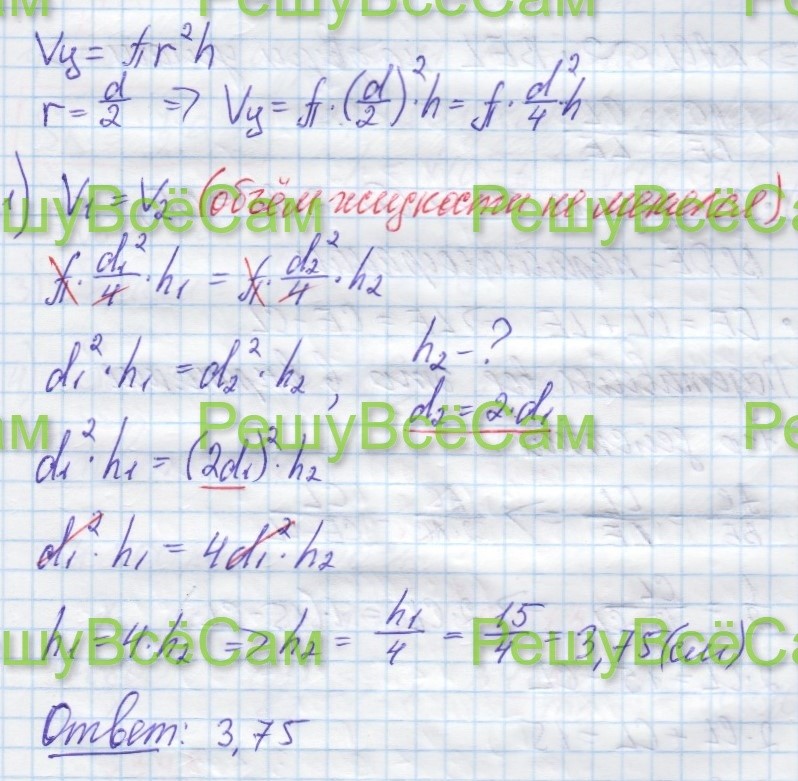 РешуВсёСам
Vц = πr²h
r = d/2 ⇒ Vц = π·(d/2)²·h = π·d²/4·h
1) V₁ = V₂ (объём жидкости не менялся)
РешуВсёСам
π·d₁²/4·h₁ = π·d₂²/4·h₂
d₁²·h₁ = d₂²·h₂, h₂ - ?
d₂ = 2·d₁
РешуВсёСам
d₁²·h₁ = (2d₁)²·h₂
d₁²·h₁ = 4d₁²·h₂
h₁ = 4·h₂ ⇒ h₂ = h₁/4 = 15/4 = 3,75(см)
РешуВсёСам
Ответ: 3,75